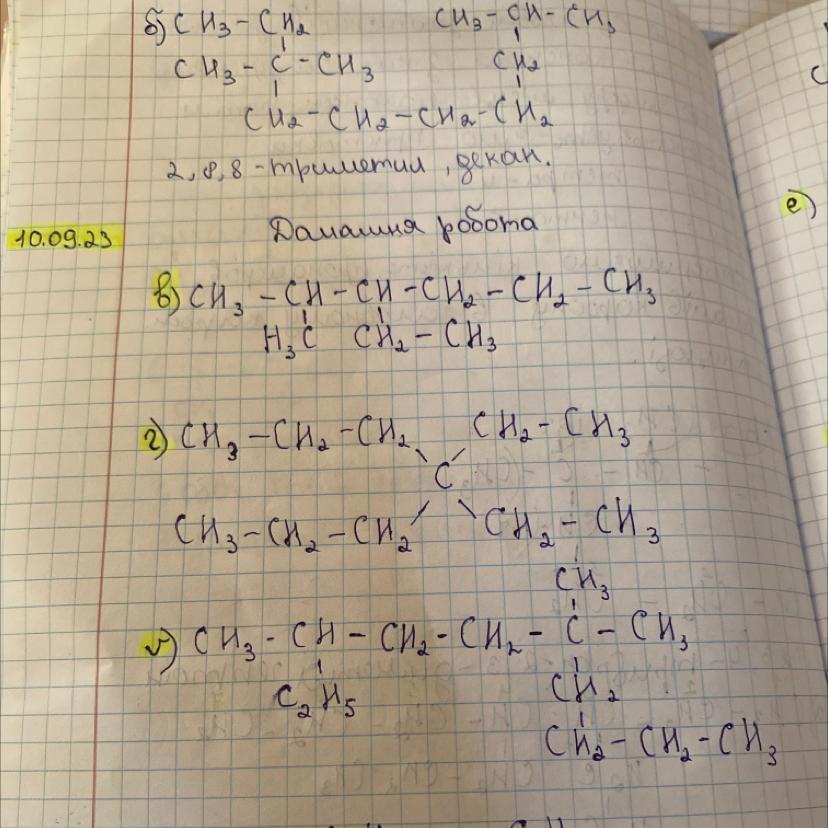 б) CH₃ - CH₂ CH₃ - CH - CH₃
CH₃ - C - CH₃ CH₂
CH₂ - CH₂ - CH₂ - CH₂
2,8,8 - триметил, декан.
10.09.23 Дамашня робота
в) CH₃ - CH - CH - CH₂ - CH₂ - CH₃
H₃C CH₂ - CH₃
г) CH₃ - CH₂ - CH₂ CH₂ - CH₃
C
CH₃ - CH₂ - CH₂ CH₂ - CH₃
CH₃
ґ) CH₃ - CH - CH₂ - CH₂ - C - CH₃
C₂H₅ CH₂
CH₂ - CH₂ - CH₃
е)